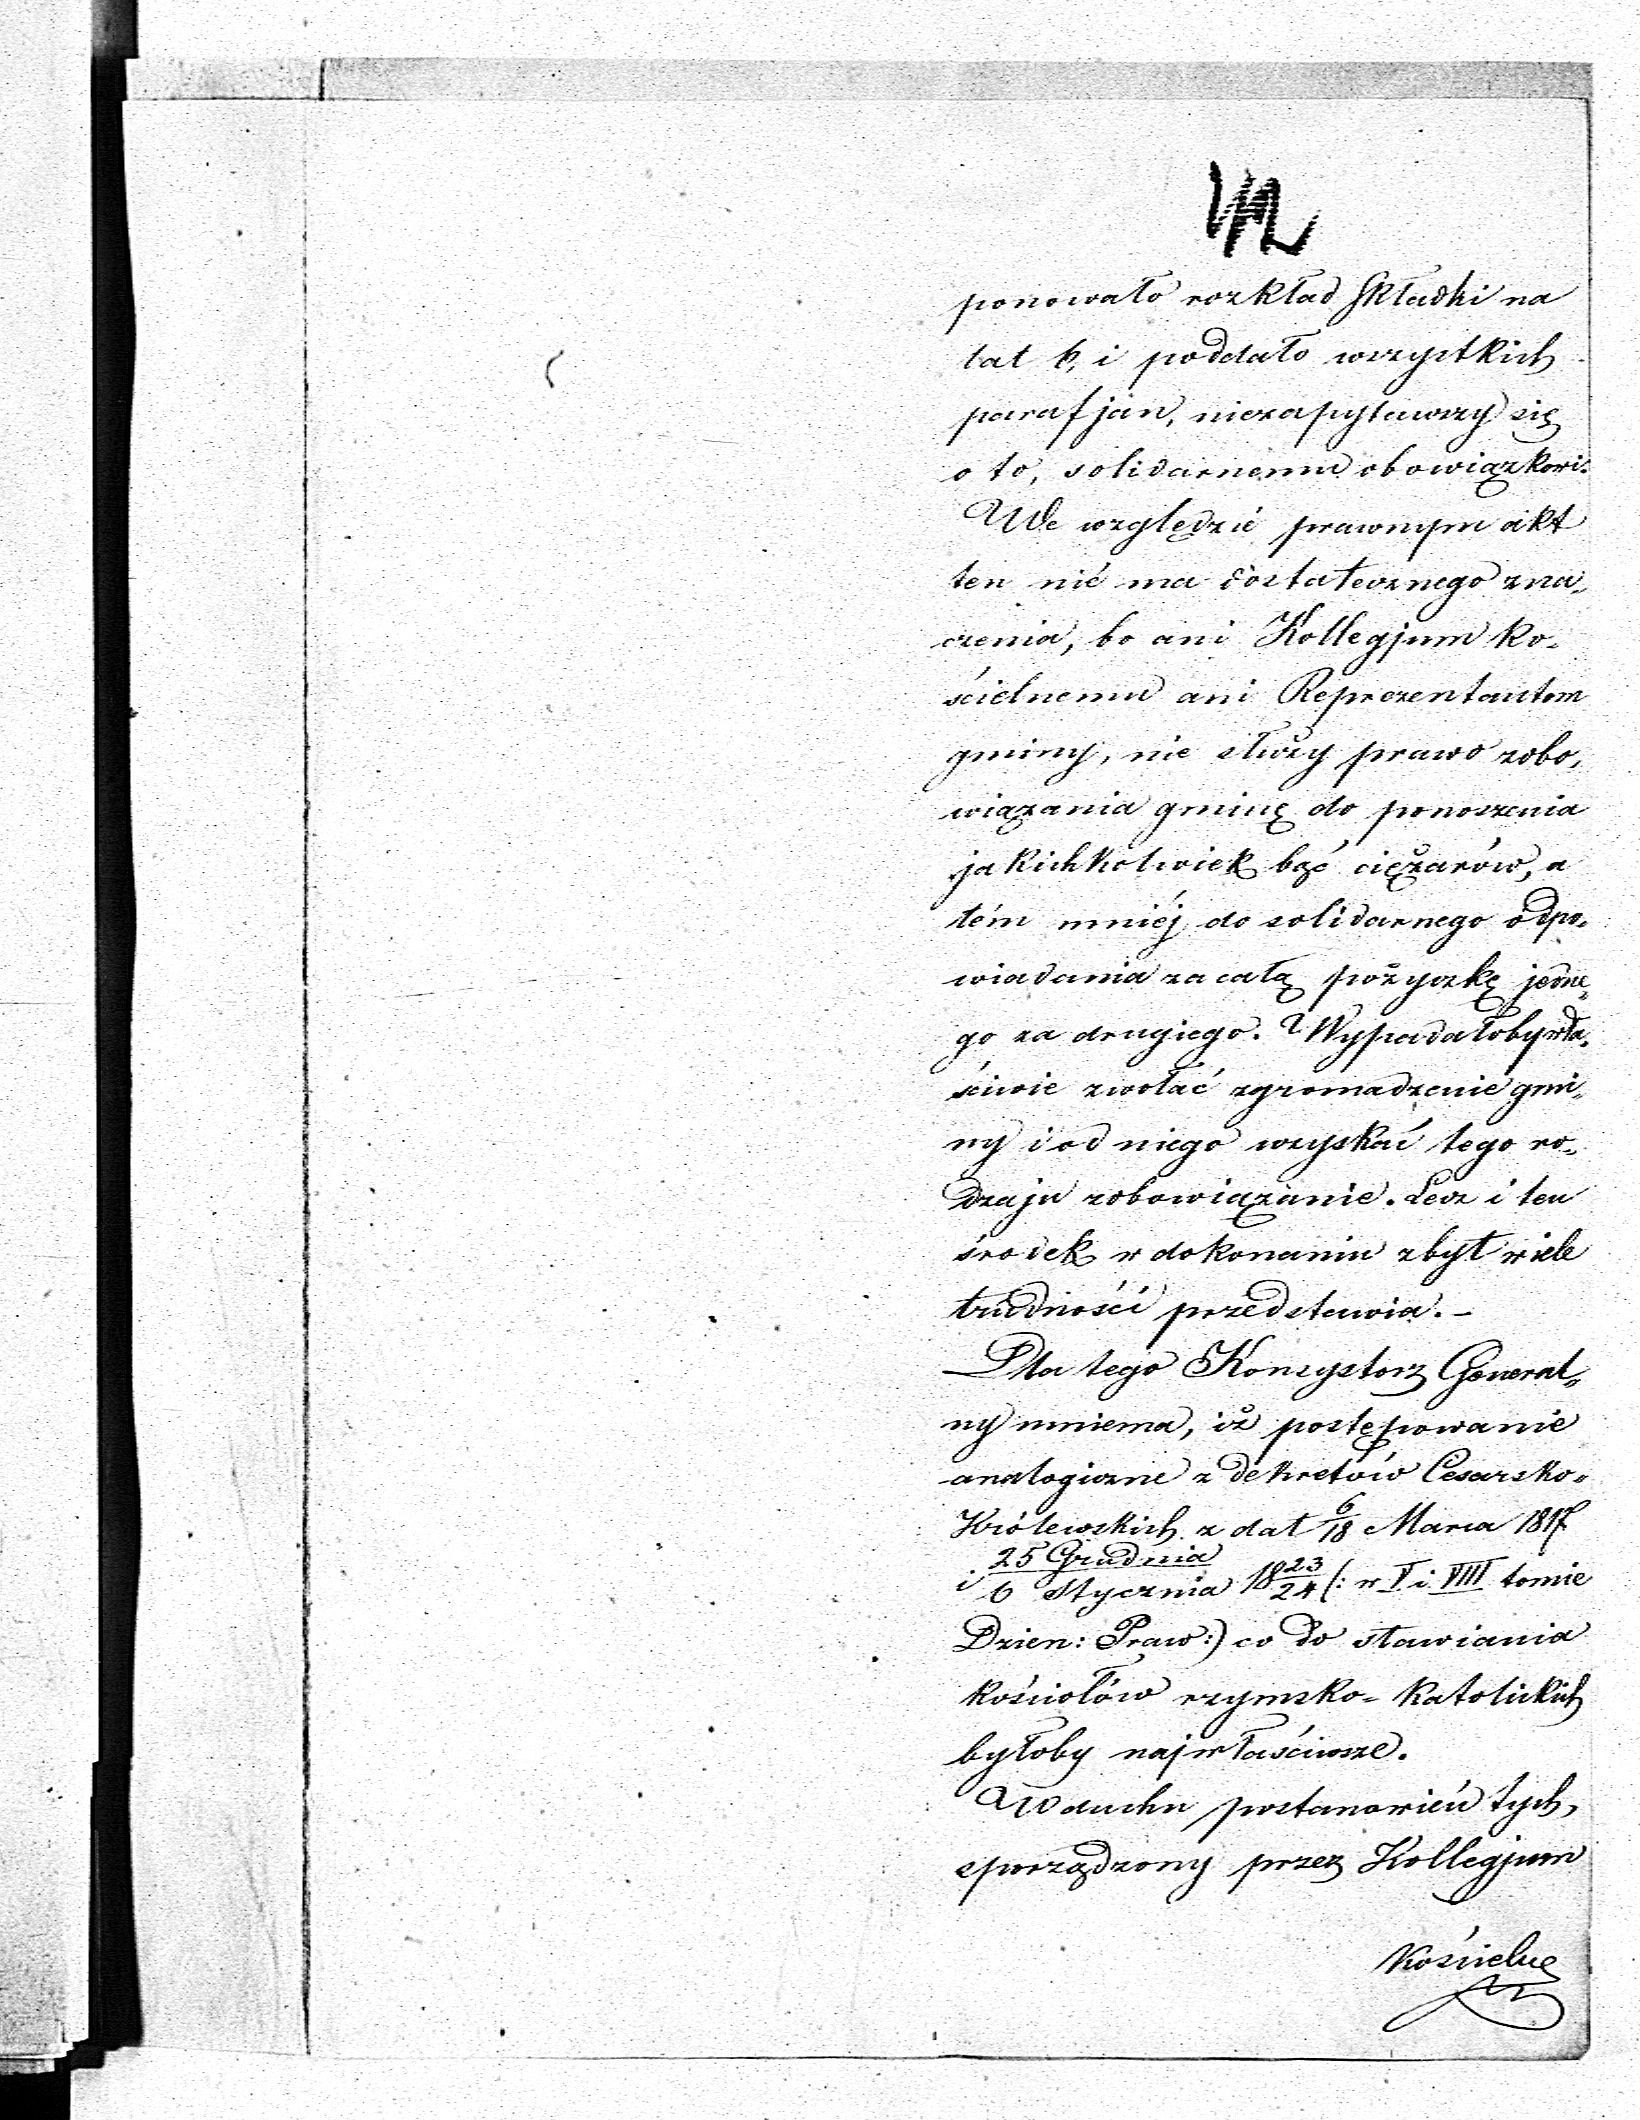 ponowało rozkład składki na
lat 6, i poddało wszystkich
parafjan, niezapytawszy się
o to, solidarnemu obowiązkowi.
We względzie prawnym akt
ten nie ma dostatecznego zna„
czenia, bo ani Kollegjum Ko„
ścielnemu ani Reprezentantom
gminy, nie służy prawo zobo„
wiązania gminę do ponoszenia
jakichkolwiek bąć ciężarów, a
tém mniéj do solidarnego odpo„
wiadania za całą pożyczkę jedne„
go za drugiego. Wypadałoby wła„
ściwie zwołać zgromadzenie gmi„
ny i od niego uzyskać tego ro„
dzaju zobowiązanie. Lecz i ten
środek w dokonaniu zbyt wiele
trudności przedstawia. –
Dla tego Konsystorz General„
ny mniema, iż postępowanie
analogiczne z dekretów Cesarsko„
Królewskich z dat 6/18 Marca 1817
i 25 Grudnia/6 Stycznia 1823/24 (: w V i VIII tomie
Dzien: Praw:) co do stawiania
kościołów rzymsko-katolickich
byłoby najwłaściwsze.
W duchu postanowień tych,
sporządzony przez Kollegjum
Kościelne